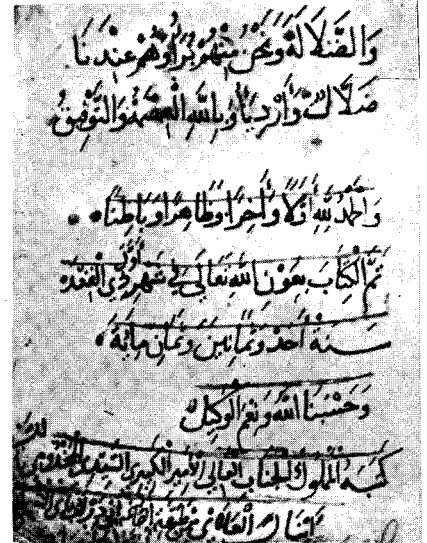 وَالضَّلَالَةُ وَنَحْنُ مِنْهُمْ بُرَآءُ وَهُمْ عِنْدَنَا
ضُلَّالٌ وَأَرْدِيَاءُ وَبِاللَّهِ الْعِصْمَةُ وَالتَّوْفِيقُ
وَالْحَمْدُ لِلَّهِ أَوَّلًا وَآخِرًا وَظَاهِرًا وَبَاطِنًا
تَمَّ الْكِتَابُ بِعَوْنِ اللَّهِ تَعَالَى فِي أَوَّلِ شَهْرِ ذِي الْقِعْدَةِ
سَنَةَ أَحَدَ وَثَمَانِينَ وَثَمَانِ مِائَةٍ
وَحَسْبُنَا اللَّهُ وَنِعْمَ الْوَكِيلُ
كتبه المملوك الجناب العالي الأمير الكبير السيدي